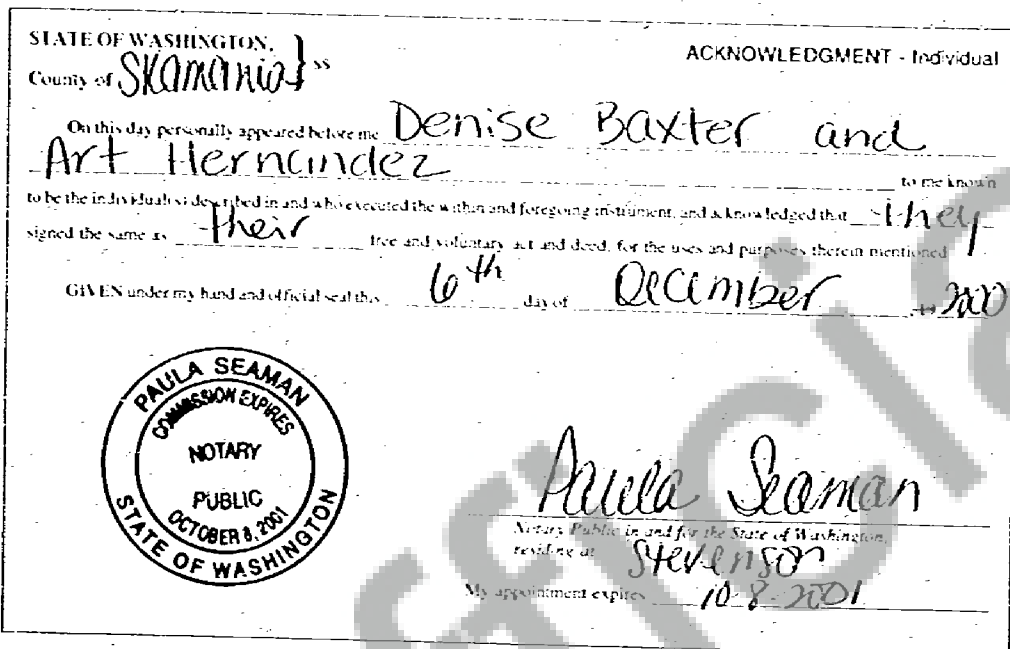 STATE OF WASHINGTON, } ss
ACKNOWLEDGMENT - Individual
County of Skamania
On this day personally appeared before me Denise Baxter and
Art Hernandez to me known
to be the individual(s) described in and who executed the within and foregoing instrument, and acknowledged that they
signed the same as their free and voluntary act and deed, for the uses and purposes therein mentioned
GIVEN under my hand and official seal this 6th day of December 2000
PAULA SEAMAN
COMMISSION EXPIRES
NOTARY
PUBLIC
OCTOBER 8, 2001
STATE OF WASHINGTON
Paula Seaman
Notary Public in and for the State of Washington,
residing at Stevenson
My appointment expires 10-8-2001